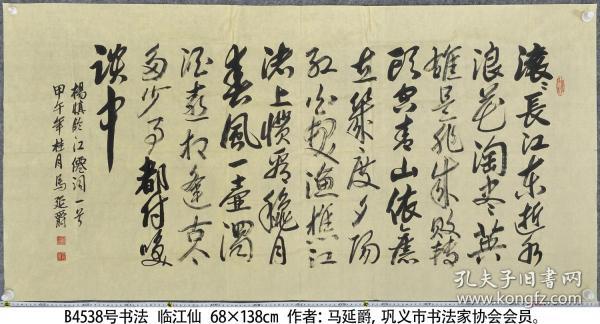 滚々長江东逝水
浪花淘尽英
雄是非成败转
头空青山依舊
在幾度夕阳
红白髪渔樵江
渚上惯看秋月
春風一壶濁
酒喜相逢古今
多少事都付笑
谈中
楊慎临江僊词一首
甲午年桂月馬延爵
孔夫子旧书网
B4538号书法 临江仙 68×138cm 作者：马延爵, 巩义市书法家协会会员。